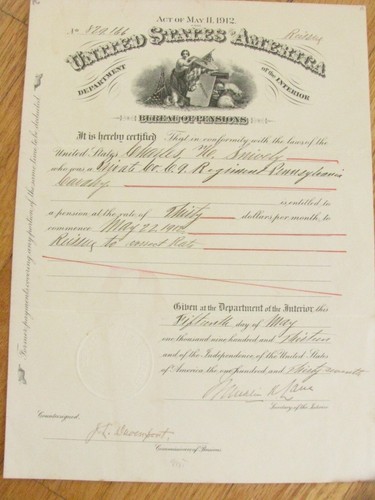 ACT OF MAY 11, 1912.
No
Reissue
UNITED STATES OF AMERICA
DEPARTMENT of the INTERIOR
BUREAU OF PENSIONS
It is hereby certified That in conformity with the laws of the
United States Charles
who was a Private Co. Regiment Pennsylvania
Cavalry
is entitled to
a pension at the rate of Thirty dollars per month, to
commence May 22 1912
Reissue to correct Rate
Given at the Department of the Interior, this
Fifteenth day of May
one thousand nine hundred and thirteen
and of the Independence of the United States
of America, the one hundred and thirty seventh
Franklin K Lane
Secretary of the Interior.
Countersigned,
J. L. Davenport,
Commissioner of Pensions.
Former payments covering any portion of the same time to be deducted.